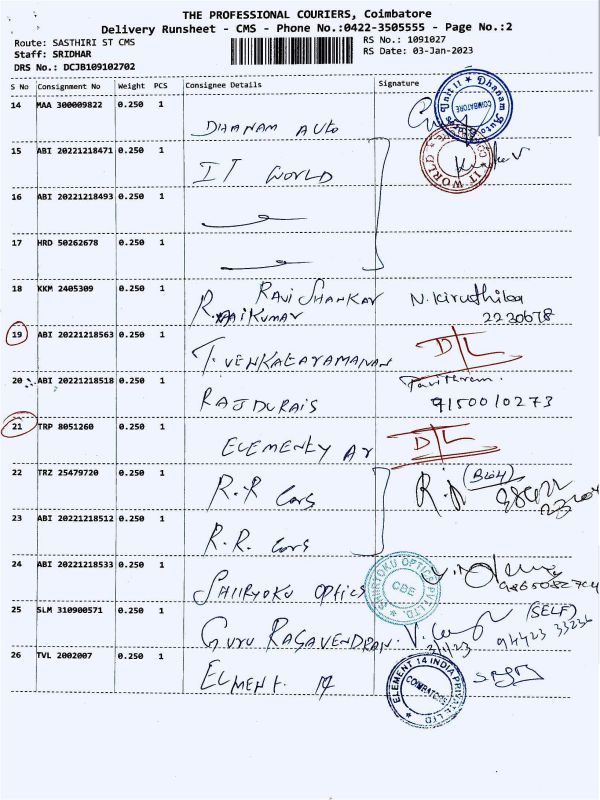 THE PROFESSIONAL COURIERS, Coimbatore
Delivery Runsheet - CMS - Phone No.:0422-3505555 - Page No.:2
Route: SASTHIRI ST CMS
RS No.: 1091027
Staff: SRIDHAR
RS Date: 03-Jan-2023
DRS No.: DCJB109102702
S No Consignment No Weight PCS Consignee Details Signature
14 MAA 300009822 0.250 1
DHANAM AUTO
Unit II ★ Dhanam Auto
COIMBATORE
15 ABI 20221218471 0.250 1
IT WORLD
IT WORLD
16 ABI 20221218493 0.250 1
17 HRD 50262678 0.250 1
18 KKM 2405309 0.250 1
RAVI SHANKAR N. Kiruthika
R. RAJKUMAR 2230678
19 ABI 20221218563 0.250 1
T. VENKATARAMANAN DTL
20 ABI 20221218518 0.250 1
Pavithram.
RAJDURAIS 9150010273
21 TRP 8051260 0.250 1
DTL
22 TRZ 25479720 0.250 1
R.R Cars R.D
23 ABI 20221218512 0.250 1
R.R. Cars
24 ABI 20221218533 0.250 1
SHIRYOKU OPTICS
SHIRYOKU OPTICS PVT. LTD.
CBE
25 SLM 310900571 0.250 1
(SELF)
GURU RAGAVENDRAN. 94423 33236
3/1/23
26 TVL 2002007 0.250 1
ELMENT. 14
ELEMENT 14 INDIA PRIVATE LTD
COIMBATORE